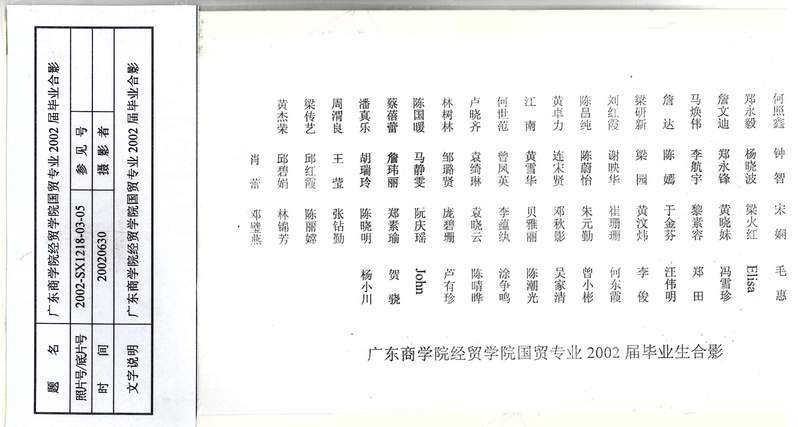 题 名 广东商学院经贸学院国贸专业 2002 届毕业合影
照片号/底片号 2002-SX1218-03-05 参 见 号
时 间 20020630 摄 影 者
文字说明 广东商学院经贸学院国贸专业 2002 届毕业合影
黄杰荣 梁传艺 周渭良 潘真乐 蔡蓓蕾 陈国暖 林树林 卢晓齐 何世范 江南 黄卓力 陈昌纯 刘红霞 梁研新 詹达 马焕伟 詹文迪 郑永毅 何照鑫
肖蕾 邱碧娟 邱红霞 王莹 胡瑞玲 詹玮丽 马静雯 邹璐贤 袁绮琳 曾凤英 黄雪华 连宋贤 陈蔚怡 谢映华 梁园 陈嫣 李航宇 郑永锋 杨晓波 钟智
邓璧燕 林锦芳 陈丽嫦 张钻勤 陈晓明 郑素瑜 阮庆瑶 庞碧珊 袁晓云 李蕴纨 贝雅丽 邓秋影 朱元勤 崔珊珊 黄汶炜 于金芬 黎素容 黄晓妹 梁火红 宋娴
杨小川 贺骁 John 卢有珍 陈晴晔 涂争鸣 陈潮光 吴家清 曾小彬 何东霞 李俊 汪伟明 郑田 冯雪珍 Elisa 毛惠
广东商学院经贸学院国贸专业 2002 届毕业生合影